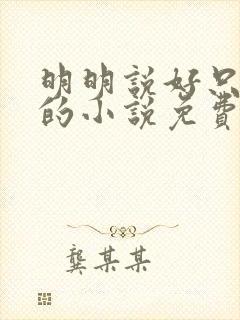 明明説好只
的小説免費
龔某某